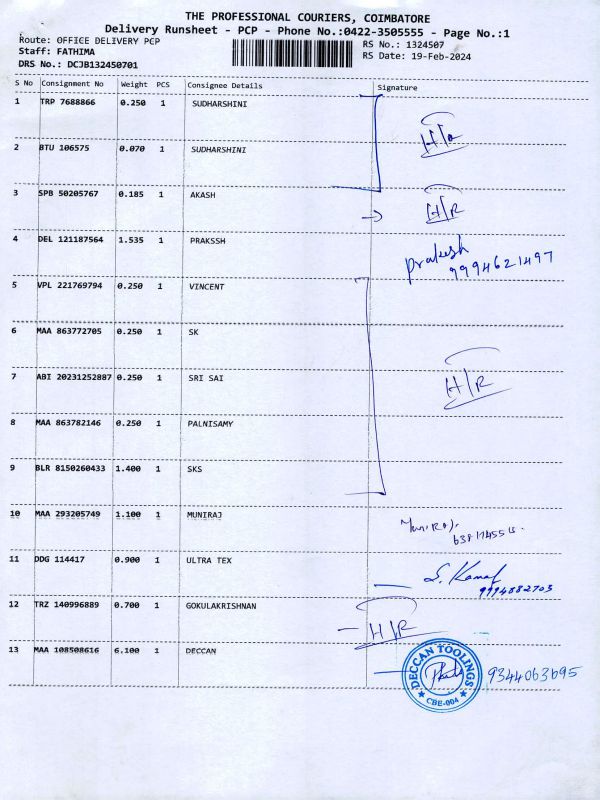 THE PROFESSIONAL COURIERS, COIMBATORE
Delivery Runsheet - PCP - Phone No.:0422-3505555 - Page No.:1
Route: OFFICE DELIVERY PCP
RS No.: 1324507
Staff: FATHIMA
RS Date: 19-Feb-2024
DRS No.: DCJB132450701
S No Consignment No Weight PCS Consignee Details Signature
1 TRP 7688866 0.250 1 SUDHARSHINI
H/R
2 BTU 106575 0.070 1 SUDHARSHINI
3 SPB 50205767 0.185 1 AKASH H/R
4 DEL 121187564 1.535 1 PRAKSSH prakesh
9994621497
5 VPL 221769794 0.250 1 VINCENT
6 MAA 863772705 0.250 1 SK
7 ABI 20231252887 0.250 1 SRI SAI H/R
8 MAA 863782146 0.250 1 PALNISAMY
9 BLR 8150260433 1.400 1 SKS
10 MAA 293205749 1.100 1 MUNIRAJ
11 DDG 114417 0.900 1 ULTRA TEX S. Kamal
9994882703
12 TRZ 140996889 0.700 1 GOKULAKRISHNAN
H/R
13 MAA 108508616 6.100 1 DECCAN
DECCAN TOOLINGS
CBE-004
9344063695